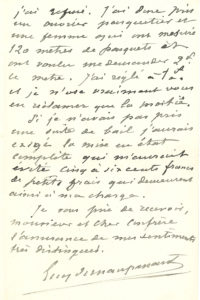 j'ai refusé. J'ai donc pris
un ouvrier parquetier et
une femme qui ont mesuré
120 mètres de parquets et
ont voulu me demander 2f
le mètre. J'ai réglé à 1f
et je n'ose vraiment vous
en réclamer que la moitié.
Si je n'avais pas pris
une suite de bail j'aurais
exigé la mise en état
complète qui m'aurait
évité cinq à six cents francs
de petits frais qui demeurent
ainsi à ma charge.
Je vous prie de recevoir,
monsieur et cher confrère
l'assurance de mes sentiments
très distingués.
Guy de Maupassant